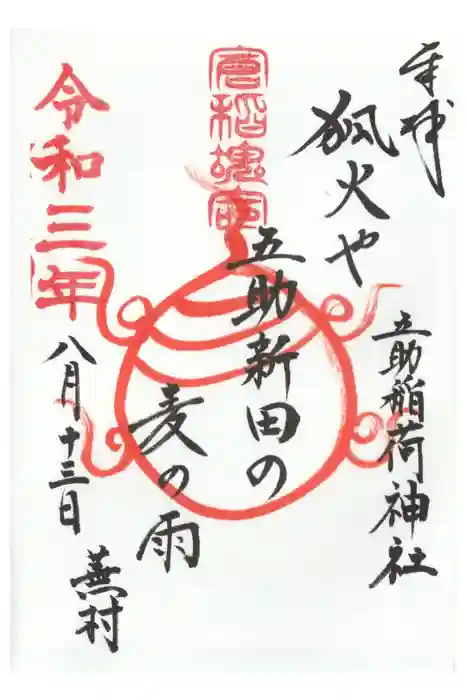 奉拝
五助稲荷神社
狐火や
五助新田の
麦の雨
蕪村
倉稲魂命
令和三年
八月十三日